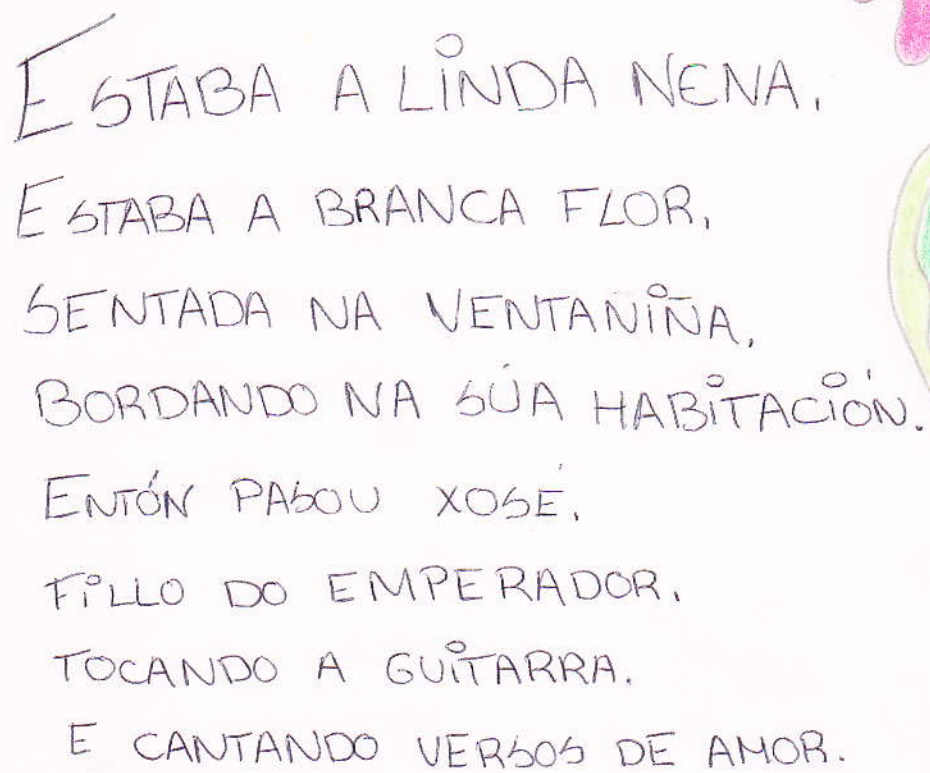 ESTABA A LINDA NENA,
ESTABA A BRANCA FLOR,
SENTADA NA VENTANIÑA,
BORDANDO NA SÚA HABITACIÓN.
ENTÓN PASOU XOSÉ,
FILLO DO EMPERADOR,
TOCANDO A GUITARRA.
E CANTANDO VERSOS DE AMOR.